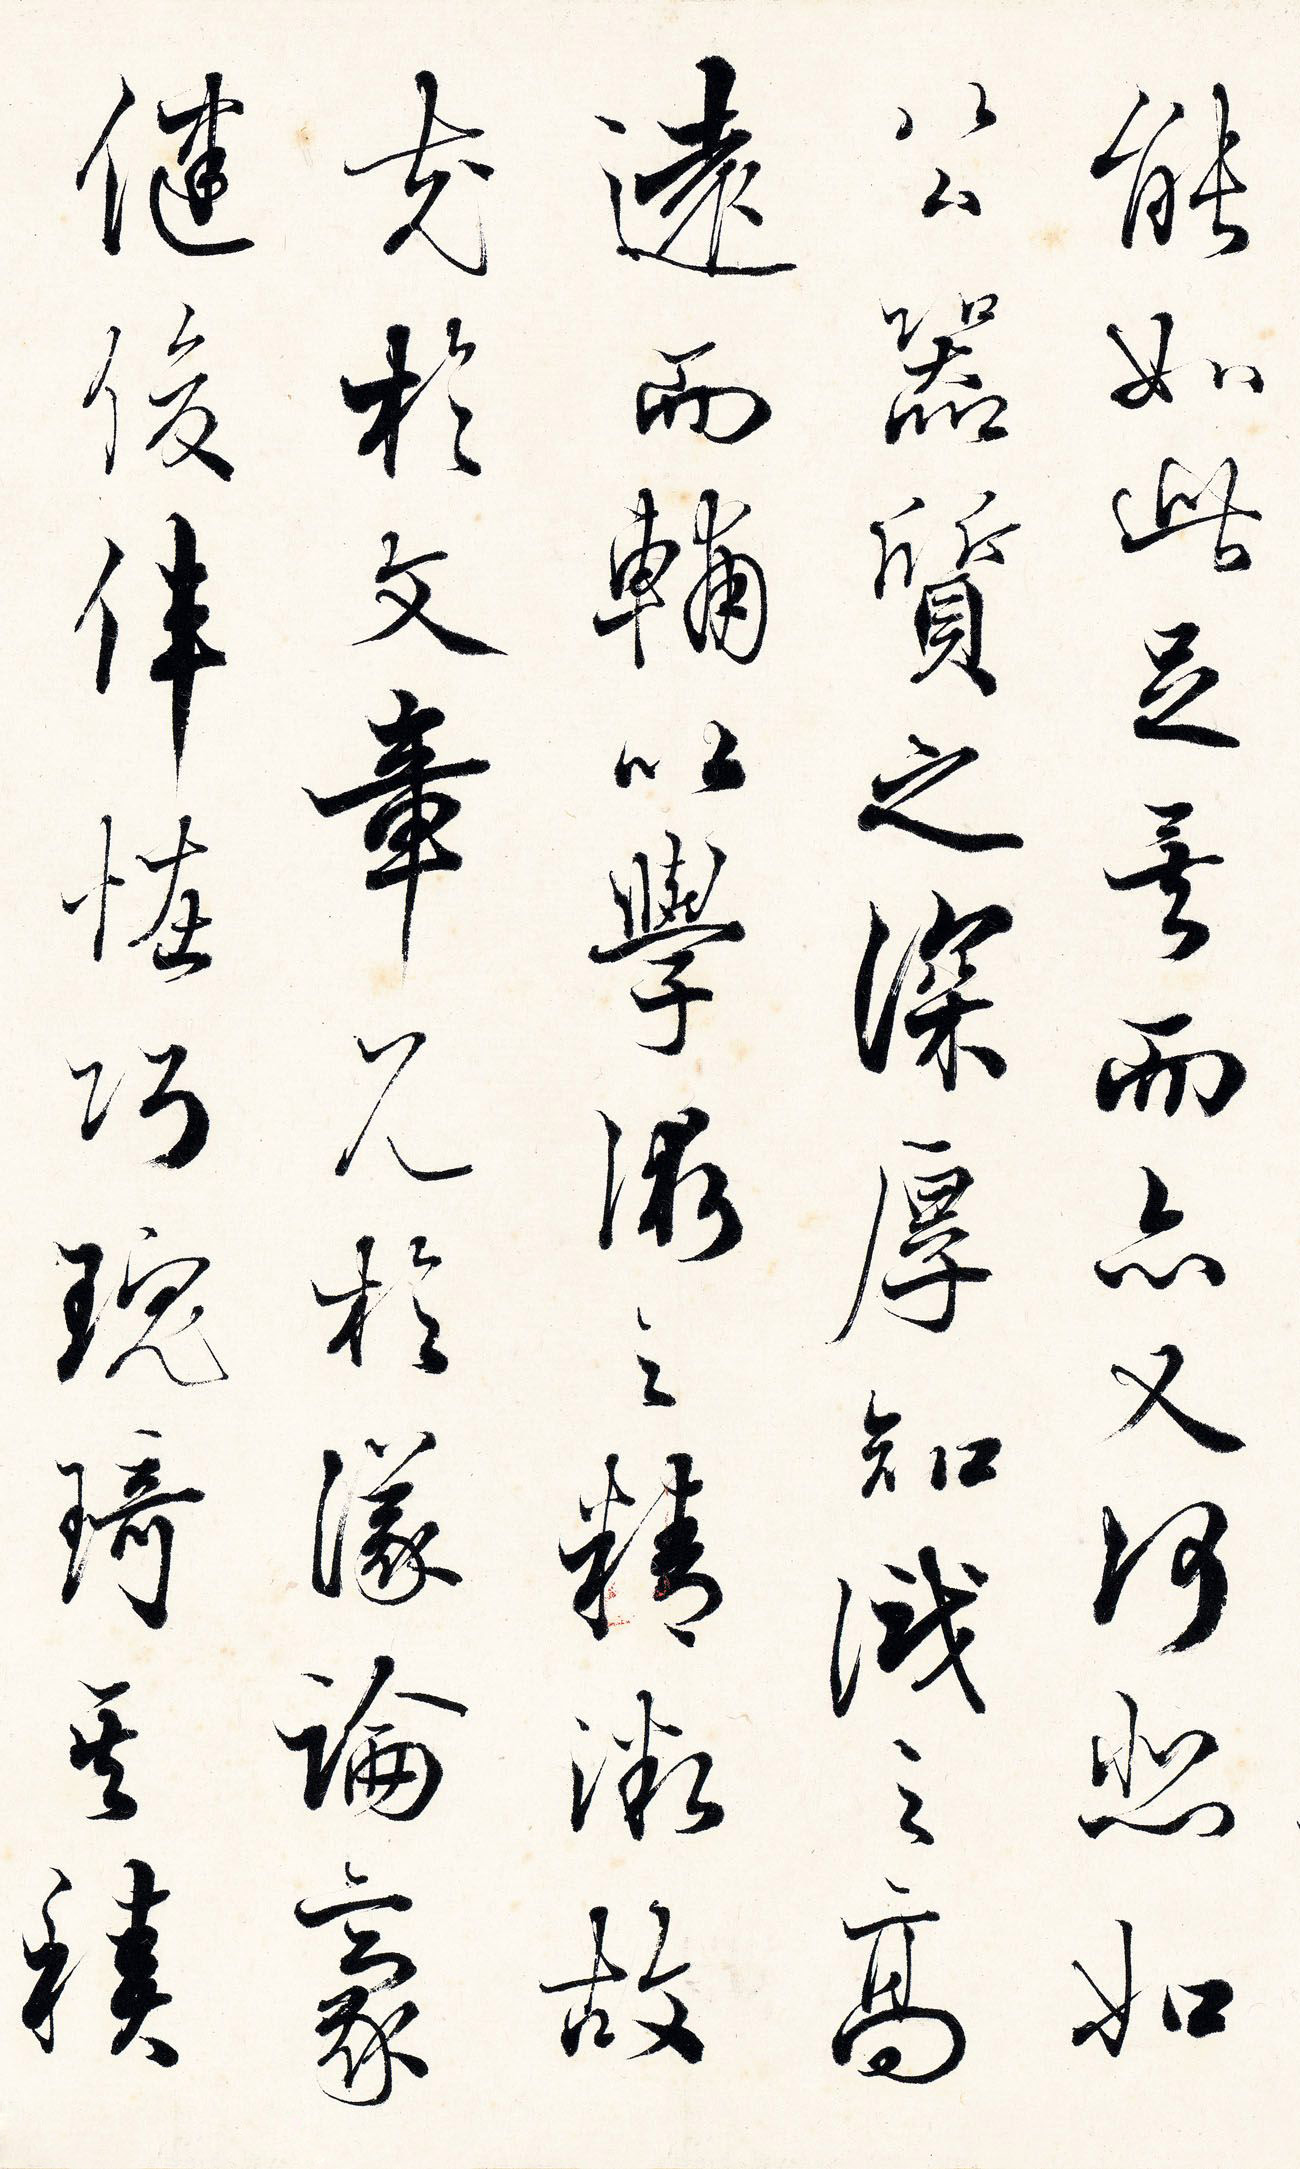 能如此足矣而亦又何悲如
公器質之深厚知識之高
遠而輔以學術之精微故
充於文章見於議論豪
健俊偉怪巧瑰琦其積